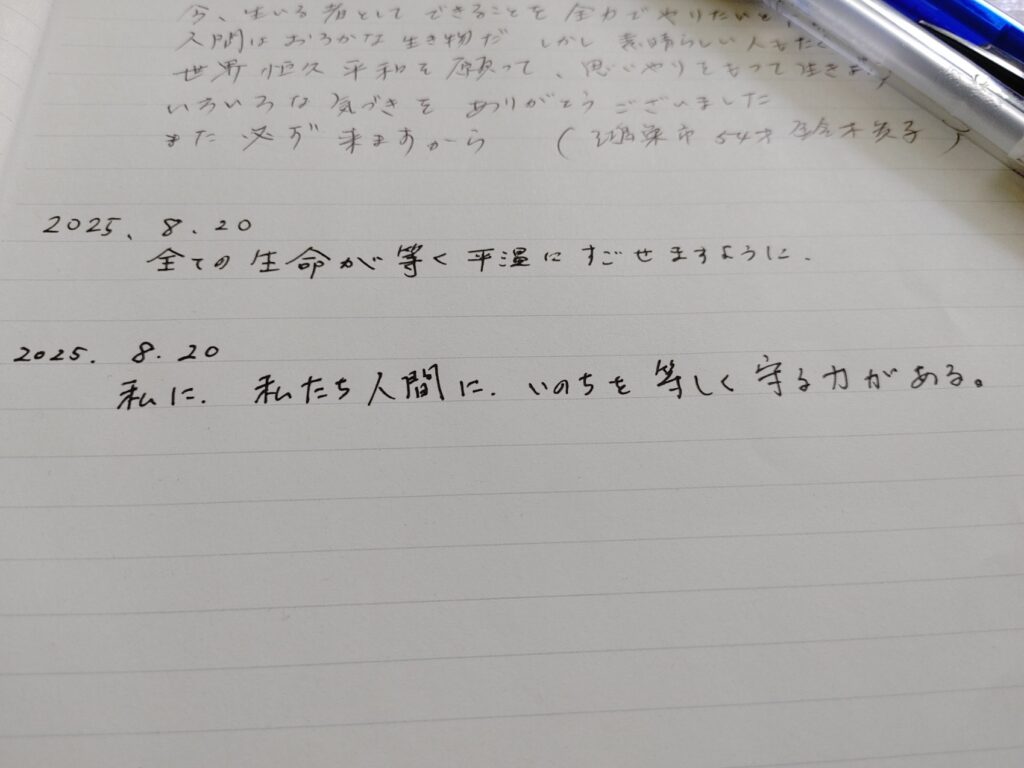 今、生いる者として できることを 全力でやりたいと
人間は おろかな 生き物だ しかし 素晴らしい 人もたく
世界 恒久 平和を 願って、思いやりをもって 生きよ
いろいろな 気づきを ありがとう ございました
また 必ず 来ますから ( 鴻巣市 54才
2025. 8. 20
全ての 生命が 等く 平温に すごせますように.
2025. 8. 20
私に. 私たち人間に. いのちを 等しく 守る力がある。